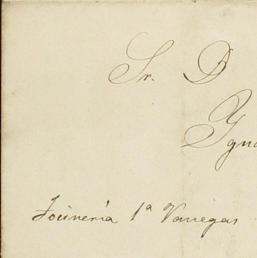 Sr. D
Ygna
Tocinería 1ª Vanegas